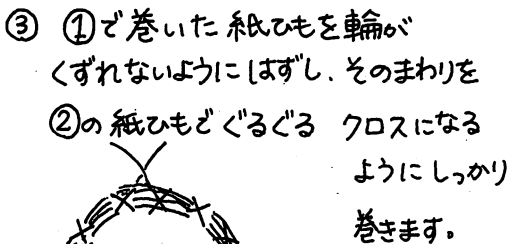 ③ ①で巻いた紙ひもを輪が
くずれないようにはずし、そのまわりを
②の紙ひもでぐるぐる クロスになる
ようにしっかり
巻きます。